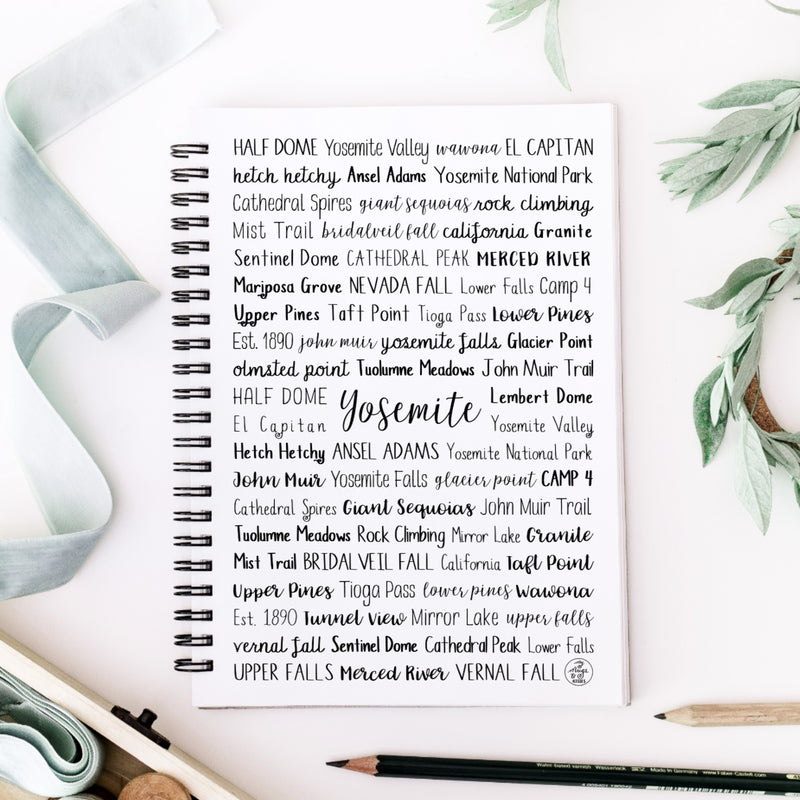 HALF DOME Yosemite Valley wawona EL CAPITAN
hetch hetchy Ansel Adams Yosemite National Park
Cathedral Spires giant sequoias rock climbing
Mist Trail bridalveil fall california Granite
Sentinel Dome CATHEDRAL PEAK MERCED RIVER
Mariposa Grove NEVADA FALL Lower Falls Camp 4
Upper Pines Taft Point Tioga Pass Lower Pines
Est. 1890 john muir yosemite falls Glacier Point
olmsted point Tuolumne Meadows John Muir Trail
HALF DOME Yosemite Lembert Dome
El Capitan Yosemite Valley
Hetch Hetchy ANSEL ADAMS Yosemite National Park
John Muir Yosemite Falls glacier point CAMP 4
Cathedral Spires Giant Sequoias John Muir Trail
Tuolumne Meadows Rock Climbing Mirror Lake Granite
Mist Trail BRIDALVEIL FALL California Taft Point
Upper Pines Tioga Pass lower pines Wawona
Est. 1890 Tunnel View Mirror Lake upper falls
vernal fall Sentinel Dome Cathedral Peak Lower Falls
UPPER FALLS Merced River VERNAL FALL
Made in Germany www.Faber-Castell.com